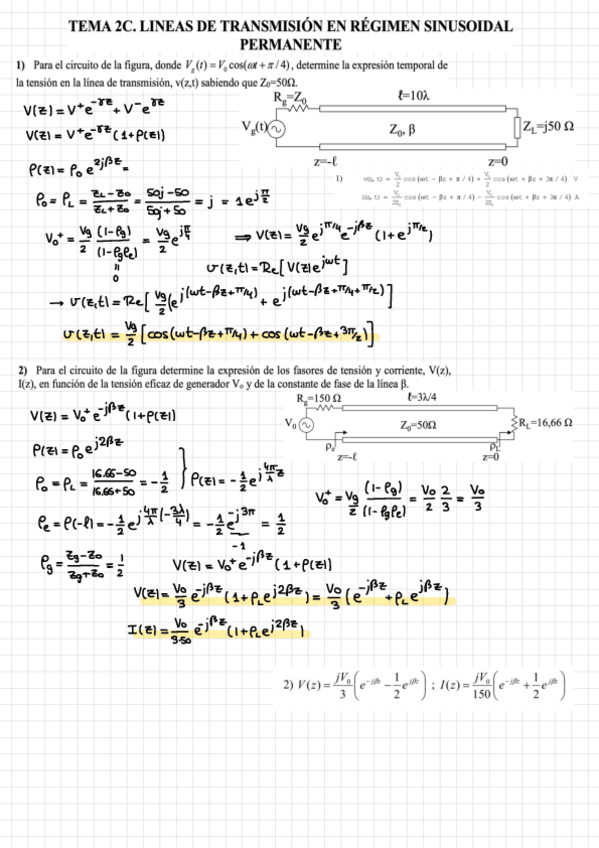 TEMA 2C. LINEAS DE TRANSMISIÓN EN RÉGIMEN SINUSOIDAL
PERMANENTE
1) Para el circuito de la figura, donde V_g(t) = V_0 cos(ωt + π/4), determine la expresión temporal de
la tensión en la línea de transmisión, v(z,t) sabiendo que Z₀=50Ω.
R_g=Z₀
ℓ=10λ
V_g(t)
Z₀, β
Z_L=j50 Ω
z=-ℓ
z=0
V(z) = V⁺e^{-γz} + V⁻e^{γz}
V(z) = V⁺e^{-γz}(1+ρ(z))
1) v(z,t) = V₀/2 cos(ωt - βz + π/4) + V₀/2 cos(ωt + βz + 3π/4) V
i(z,t) = V₀/2Z₀ cos(ωt - βz + π/4) - V₀/2Z₀ cos(ωt + βz + 3π/4) A
ρ(z) = ρ₀ e^{2jβz} =
ρ₀ = ρ_L = (Z_L - Z₀)/(Z_L + Z₀) = (50j - 50)/(50j + 50) = j = 1e^{jπ/2}
V₀⁺ = Vg/2 (1-ρg)/(1-ρgρe) = Vg/2 e^{jπ/4} ⇒ V(z) = Vg/2 e^{jπ/4} e^{-jβz}(1+e^{jπ/2})
"
0
v(z,t) = Re[V(z)e^{jωt}]
→ v(z,t) = Re[Vg/2(e^{j(ωt-βz+π/4)} + e^{j(ωt-βz+π/4+π/2)}]
v(z,t) = Vg/2 [cos(ωt-βz+π/4) + cos(ωt-βz+3π/2)]
2) Para el circuito de la figura determine la expresión de los fasores de tensión y corriente, V(z),
I(z), en función de la tensión eficaz de generador V₀ y de la constante de fase de la línea β.
R_g=150 Ω
ℓ=3λ/4
V₀
Z₀=50Ω
R_L=16,66 Ω
ρe
ρL
z=-ℓ
z=0
V(z) = V₀⁺e^{-jβz}(1+ρ(z))
ρ(z) = ρ₀e^{j2βz}
ρ₀ = ρ_L = (16.66-50)/(16.66+50) = -1/2 } ρ(z) = -1/2 e^{j4π/λ z}
V₀⁺ = Vg/2 (1-ρg)/(1-ρgρe) = V₀/2 2/3 = V₀/3
ρe = ρ(-l) = -1/2 e^{j4π/λ(-3λ/4)} = -1/2 e^{-j3π} = 1/2
-1
ρg = (Zg-Z₀)/(Zg+Z₀) = 1/2
V(z) = V₀⁺e^{-jβz}(1+ρ(z))
V(z) = V₀/3 e^{-jβz}(1+ρ_L e^{j2βz}) = V₀/3 (e^{-jβz} + ρ_L e^{jβz})
I(z) = V₀/3·50 e^{-jβz}(1+ρ_L e^{j2βz})
2) V(z) = jV₀/3 (e^{-jβz} - 1/2 e^{jβz}) ; I(z) = jV₀/150 (e^{-jβz} + 1/2 e^{jβz})